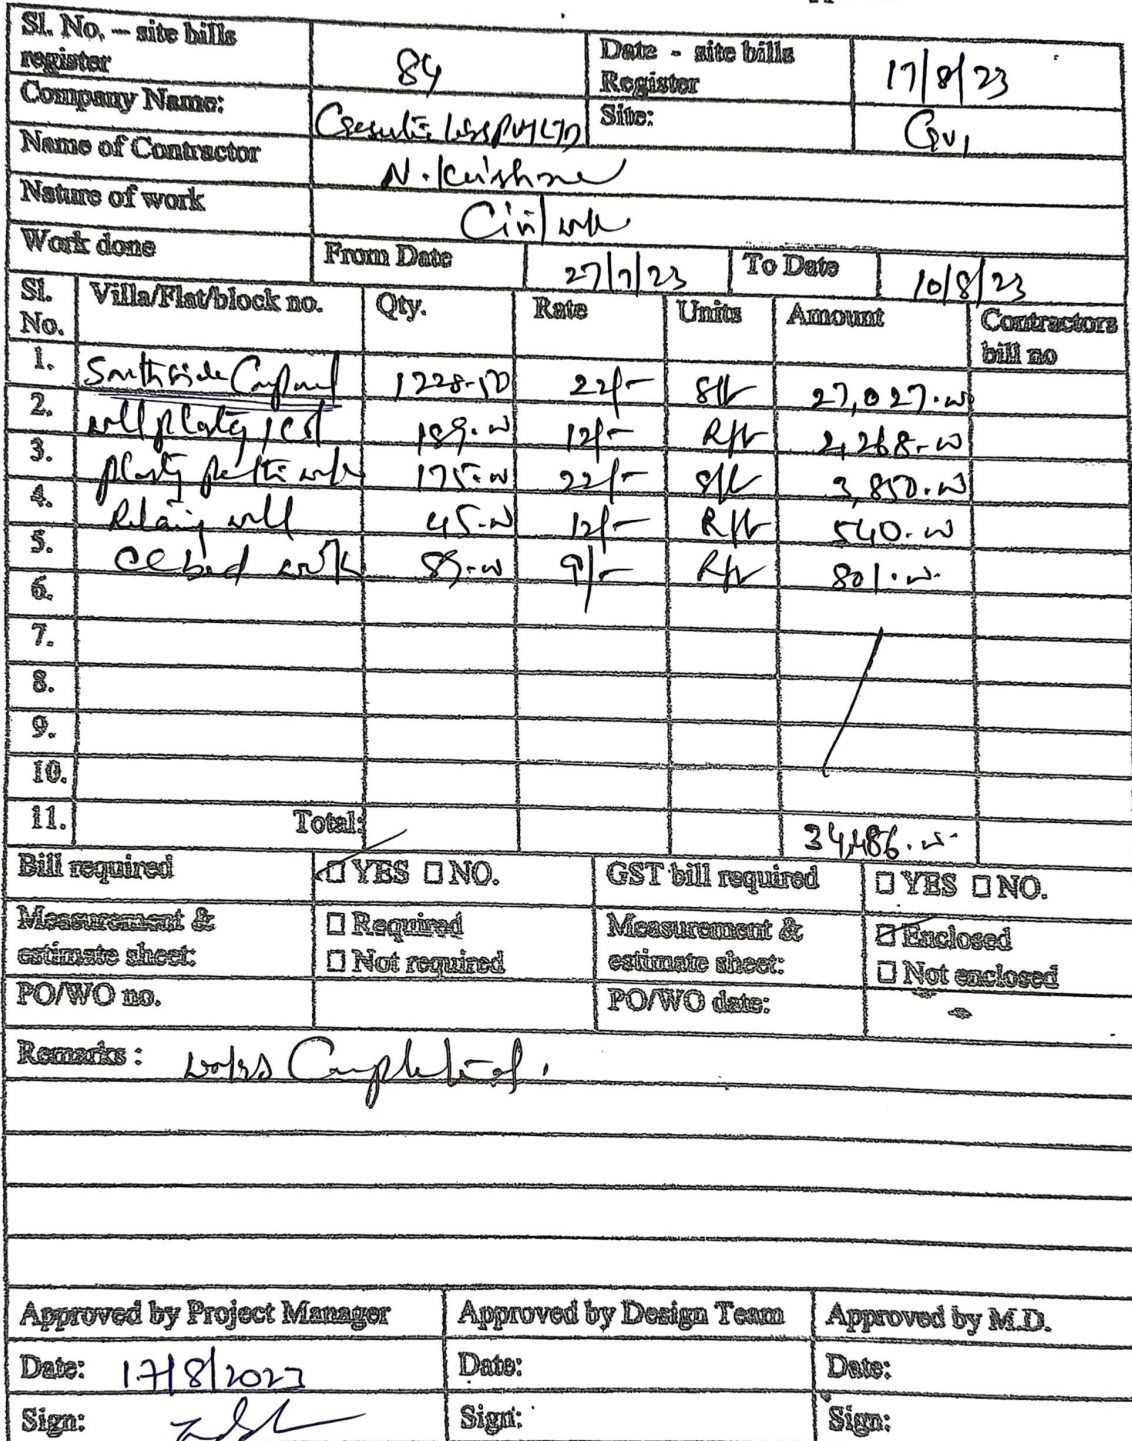 Sl. No. – site bills register 84 Date - site bills Register 17/8/23
Company Name: PVT LTD Site: GV1
Name of Contractor N. Krishna
Nature of work Civil work
Work done From Date 27/7/23 To Date 10/8/23
Sl. No. Villa/Flat/block no. Qty. Rate Units Amount Contractors bill no
1. South side Compound 1228-50 22/- Sft 27,027.00
2. wall 189.00 12/- Rft 2,268.00
3. 175.00 22/- Sft 3,850.00
4. wall 45.00 12/- Rft 540.00
5. bed work 89.00 9/- Rft 801.00
6.
7.
8.
9.
10.
11. Total: 34,486.00
Bill required □ YES □ NO. GST bill required □ YES □ NO.
Measurement & estimate sheet: □ Required □ Not required Measurement & estimate sheet: □ Enclosed □ Not enclosed
PO/WO no. PO/WO date:
Remarks : works Completed.
Approved by Project Manager Approved by Design Team Approved by M.D.
Date: 17/8/2023 Date: Date:
Sign: Sign: Sign: